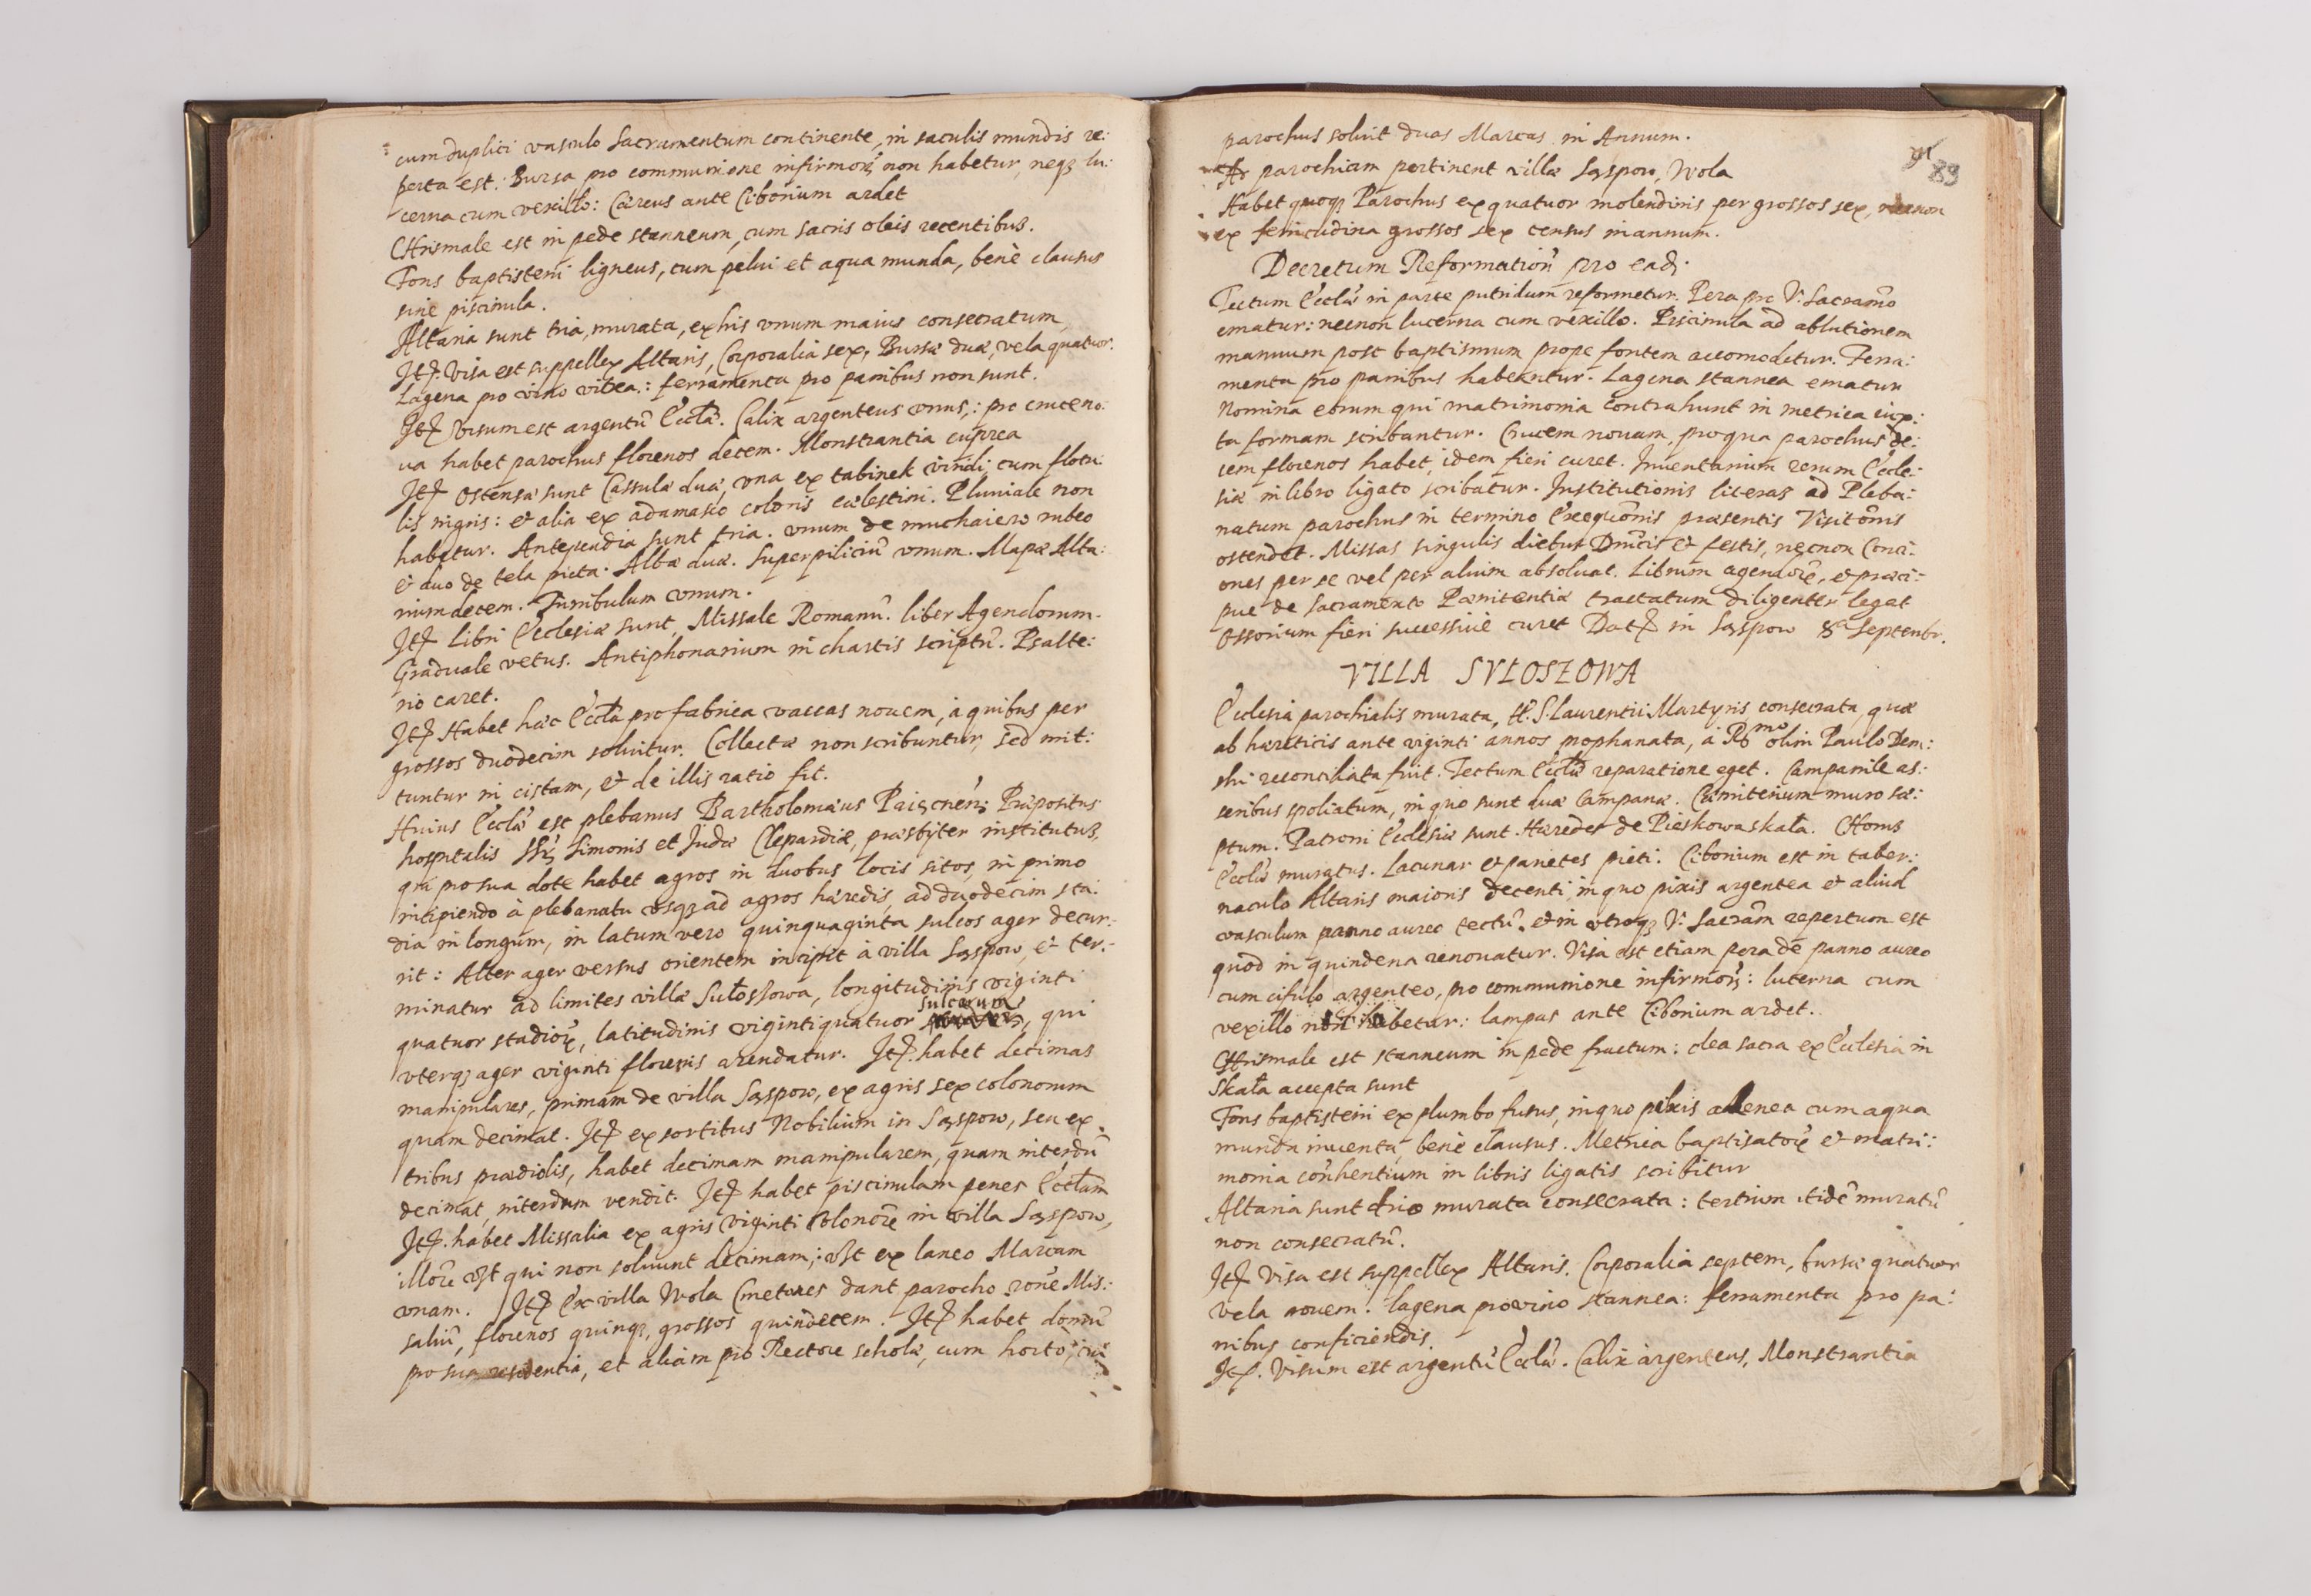 cum duplici vasculo Sacramentum continente, in saculis mundis re:
perta est. Bursa pro communione infirmorũ non habetur, neqз lu:
cerna cum vexillo: Cæreus ante Cibonium ardet
CHrismale est in pede stanneum, cum sacris oleis recentibus.
Fons baptisterii ligneus, cum pelui et aqua munda, benè clausus
sine piscinula.
Altaria sunt tria, murata, ex his vnum maius consecratum
Itẽ. Visa est suppellex Altaris, Corporalia sex, Bursæ duæ, vela quatuor.
Lagena pro vino vitrea: ferramenta pro panibus non sunt.
Itẽ Visum est argentũ Eccłæ. Calix argenteus vnus,: pro cruce no:
ua habet parochus florenos decem. Monstrantia cuprea
Itẽ Ostensæ sunt Cassulæ duæ, vna ex tabinek viridi, cum flocu:
lis nigris: et alia ex adamasco coloris cælestini. Pluuiale non
habetur. Antependia sunt tria. vnum de muchaiero rubeo
et duo de tela picta. Albæ duæ. Superpiliciũ vnum. Mapæ Alta:
rium decem. Turribulum vnum.
Itẽ Libri Ecclesiæ sunt, Missale Romanũ. liber Agendorum.
Graduale vetus. Antiphonarium in chartis scriptũ. Psalte:
rio caret.
Itẽ Habet hæc Eccła pro fabrica vaccas nouem, à quibus per
grossos duodecim soluitur. Collectæ non scribuntur, sed mit:
tuntur in cistam, et de illis ratio fit.
Huius Eccłæ est plebanus Bartholomæus Præpositus
hospitalis Simonis et Iudæ Clepardiæ, præsbyter institutus,
qui pro sua dote habet agros in duobus locis sitos, in primo
incipiendo à plebanatu vsqз ad agros hæredis, ad duodecim sta:
dia in longum, in latum vero quinquaginta sulcos ager decur:
rit: Alter ager versus orientem incipit à villa Sąspow, et ter:
minatur ad limites villæ Sułossowa, longitudinis viginti
quatuor stadiorũ, latitudinis viginti quatuor sulcorum, qui
vterqз ager viginti florenis arendatur. Itẽ. habet decimas
manipulares, primam de villa Sąspow, ex agris sex colonorum
quam decimat. Itẽ ex sortibus Nobilium in Sąspow, seu ex
tribus prædiolis, habet decimam manipularem, quam interdũ
decimat, interdum vendit. Itẽ habet piscinulam penes Eccłam
Itẽ. habet Missalia ex agris viginti Colonorũ in villa Sąspow,
illorũ qui non soluunt decimam,: ex laneo Marcam
vnam. Itẽ Ex villa Wola Cmetones dant parocho rõne Mis:
saliũ, florenos quinqз, grossos quindecem. Itẽ habet domũ
pro sua residentia, et aliam pro Rectore scholæ, cum horto,
91
89
parochus soluit duas Marcas in Annum.
Ad parochiam pertinent villæ Sąspow, Wola
Habet quoqз Parochus ex quatuor molendinis per grossos sex, necnon
ex ferricudina grossos sex census in annum.
Decretum Reformationĩ pro ead.
Tectum Eccłæ in parte putridum reformetur. Pera pro V. Sacramõ
ematur: necnon lucerna cum vexillo. Piscinula ad ablutionem
manuum post baptismum prope fontem accomodetur. Ferra:
menta pro panibus habeantur. Lagena stannea ematur
Nomina eorum qui matrimonia contrahunt in metrica iux:
ta formam scribantur. Crucem nouam, pro qua parochus de:
cem florenos habet, idem fieri curet. Inuentarium rerum Eccle:
siæ in libro ligato scribatur. Institutionis literas ad Pleba:
natum parochus in termino Exequõnis præsentis Visitõnis
ostendet. Missas singulis diebus Dnĩcis et festis, necnon Conci:
ones per se vel per alium absoluat. Librum agendorũ, et præci:
pue de Sacramento Pænitentiæ tractatum diligenter leget
Ossorium fieri successiuè curet Datẽ in Sąspow 8ª Septembr.
VILLA SVŁOSZOWA
Ecclesia parochialis murata, tt. S. Laurentii Martyris consecrata, quæ
ab hæreticis ante viginti annos prophanata, à Rmo olim Paulo Dem:
ski reconciliata fuit. Tectum Eccłæ reparatione eget. Campanile as:
seribus spoliatum, in quo sunt duæ Campanæ. Cæmiterium muro sæ:
ptum. Patroni Ecclesiæ sunt Hæredes de Pieskowaskała. CHorus
Eccłæ muratus. Lacunar et parietes picti. Cibonium est in taber:
naculo Altaris maioris decenti, in quo pixis argentea et aliud
vasculum panno aureo tectũ, et in vtroqз V. Sacram̃ repertum est
quod in quindena renouatur. Visa est etiam pera de panno aureo
cum cifulo argenteo, pro communione infirmorũ: lucerna cum
vexillo non habetur: lampas ante Cibonium ardet.
CHrismale est stanneum in pede fractum: olea sacra ex Ecclesia in
Skała accepta sunt
Fons baptisterii ex plumbo fusus, in quo pelvis ahenea cum aqua
munda inuenta, benè clausus. Metrica baptisatorũ et matri:
monia con̈hentium in libris ligatis scribitur
Altaria sunt duo murata consecrata: tertium itidẽ muratũ
non consecratũ.
Itẽ Visa est suppellex Altaris. Corporalia septem, bursæ quatuor
Vela nouem. lagena pro vino stannea: ferramenta pro pa:
nibus conficiendis.
Itẽ. Visum est argentũ Eccłæ. Calix argenteus, Monstrantia